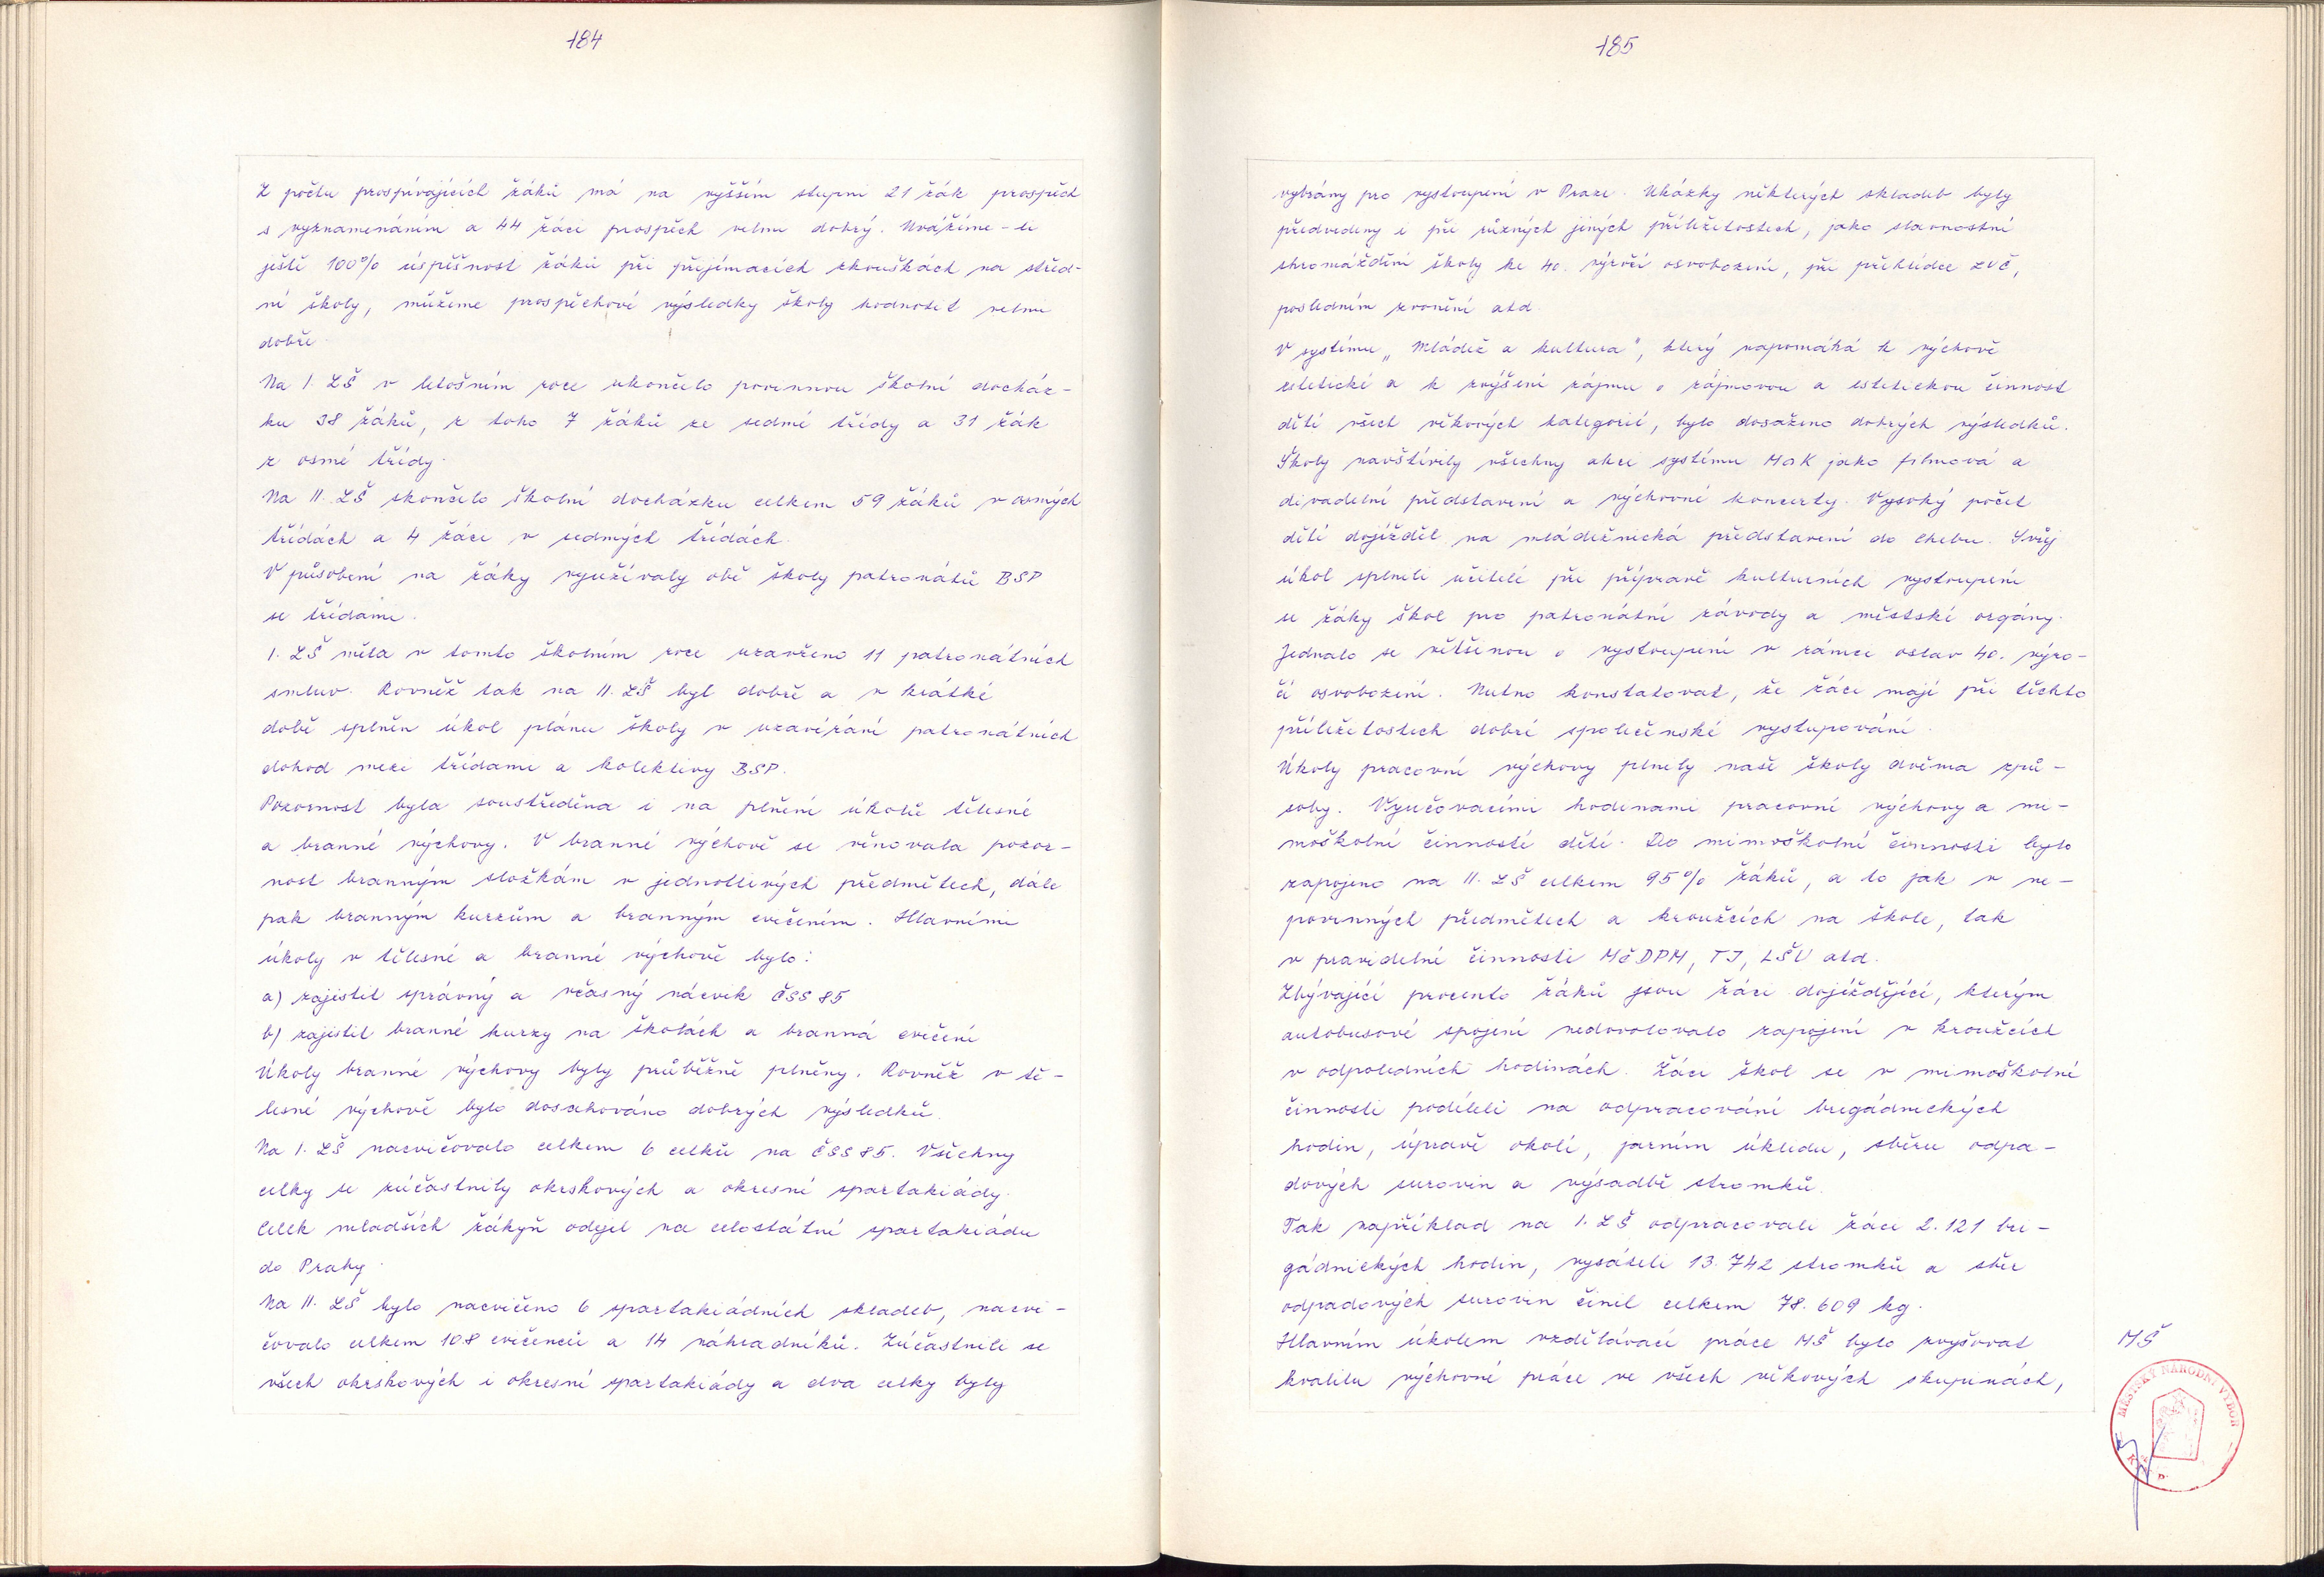 184
Z počtu prospívajících žáků má na vyšším stupni 21 žák prospěch
s vyznamenáním a 44 žáci prospěch velmi dobrý. Uvážíme-li
ještě 100% úspěšnost žáků při přijímacích zkouškách na střed-
ní školy, můžeme prospěchové výsledky školy hodnotit velmi
dobře.
Na I. ZŠ v letošním roce ukončilo povinnou školní docház-
ku 38 žáků, z toho 7 žáků ze sedmé třídy a 31 žák
z osmé třídy.
Na II. ZŠ skončilo školní docházku celkem 59 žáků v osmých
třídách a 4 žáci v sedmých třídách.
V působení na žáky využívaly obě školy patronátů BSP
se třídami.
I. ZŠ měla v tomto školním roce uzavřeno 11 patronátních
smluv. Rovněž tak na II. ZŠ byl dobře a v krátké
době splněn úkol plánu školy v uzavírání patronátních
dohod mezi třídami a kolektivy BSP.
Pozornost byla soustředěna i na plnění úkolů tělesné
a branné výchovy. V branné výchově se věnovala pozor-
nost branným složkám v jednotlivých předmětech, dále
pak branným kurzům a branným cvičením. Hlavními
úkoly v tělesné a branné výchově bylo:
a) zajistit správný a včasný nácvik ČSS 85
b) zajistit branné kurzy na školách a branná cvičení
Úkoly branné výchovy byly průběžně plněny. Rovněž v tě-
lesné výchově bylo dosahováno dobrých výsledků.
Na I. ZŠ nacvičovalo celkem 6 celků na ČSS 85. Všechny
celky se zúčastnily okrskových a okresní spartakiády.
Celek mladších žákyň odjel na celostátní spartakiádu
do Prahy.
Na II. ZŠ bylo nacvičeno 6 spartakiádních skladeb, nacvi-
čovalo celkem 108 cvičenců a 14 náhradníků. Zúčastnili se
všech okrskových i okresní spartakiády a dva celky byly
185
vybrány pro vystoupení v Praze. Ukázky některých skladeb byly
předvedeny i při různých jiných příležitostech, jako slavnostní
shromáždění školy ke 40. výročí osvobození, při přehlídce ZUČ,
posledním zvonění atd.
V systému „Mládež a kultura", který napomáhá k výchově
estetické a k zvýšení zájmu o zájmovou a estetickou činnost
dětí všech věkových kategorií, bylo dosaženo dobrých výsledků.
Školy navštívily všechny akci systému MaK jako filmová a
divadelní představení a výchovné koncerty. Vysoký počet
dětí dojížděl na mládežnická představení do Chebu. Svůj
úkol splnili učitelé při přípravě kulturních vystoupení
se žáky škol pro patronátní závody a městské orgány.
Jednalo se většinou o vystoupení v rámci oslav 40. výro-
čí osvobození. Nutno konstatovat, že žáci mají při těchto
příležitostech dobré společenské vystupování.
Úkoly pracovní výchovy plnily naše školy dvěma způ-
soby. Vyučovacími hodinami pracovní výchovy a mi-
moškolní činností dětí. Do mimoškolní činnosti bylo
zapojeno na II. ZŠ celkem 95% žáků, a to jak v ne-
povinných předmětech a kroužcích na škole, tak
v pravidelné činnosti MěDPM, TJ, LŠU atd.
Zbývající procento žáků jsou žáci dojíždějící, kterým
autobusové spojení nedovolovalo zapojení v kroužcích
v odpoledních hodinách. Žáci škol se v mimoškolní
činnosti podíleli na odpracování brigádnických
hodin, úpravě okolí, jarním úklidu, sběru odpa-
dových surovin a výsadbě stromků.
Tak například na I. ZŠ odpracovali žáci 2.121 bri-
gádnických hodin, vysázeli 13.742 stromků a sběr
odpadových surovin činil celkem 78.609 kg.
Hlavním úkolem vzdělávací práce MŠ bylo zvyšovat
kvalitu výchovné práce ve všech věkových skupinách,
MŠ
MĚSTSKÝ NÁRODNÍ VÝBOR